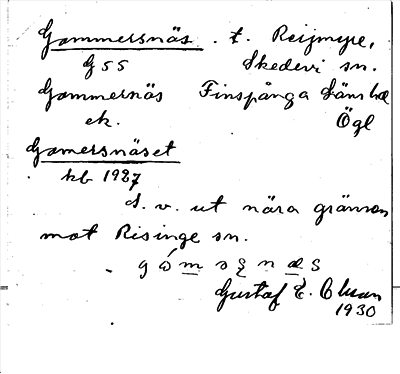 Gammersnäs . t. Reijmyre,
G 55 Skedevi sn.
Gammernäs Finspånga läns hd
ek. Ögl
Gamersnäset
kb 1927
S. v. ut nära gränsen
mot Risinge sn.
Gustaf E.
1930